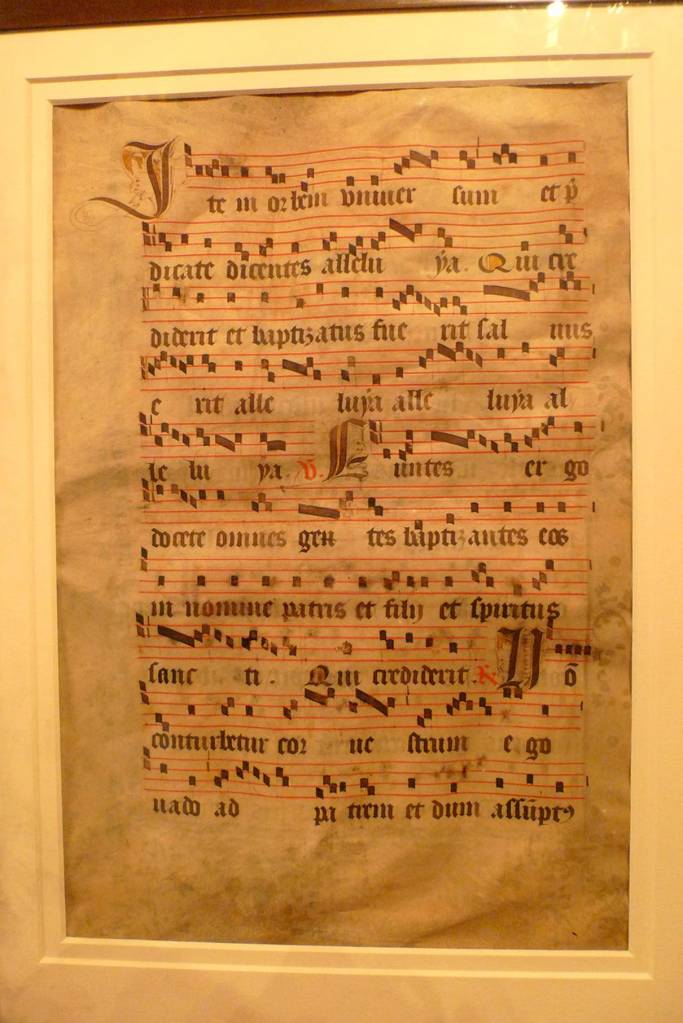 Ite in orbem vniuer sum et p̄
dicate dicentes allelu ya. Qui cre
diderit et baptizatus fue rit sal uus
e rit alle luya alle luya al
le lu ya. ℣. Euntes er go
docete omnes gen tes baptizantes eos
in nomine patris et filij et spiritus
sanc ti. Qui crediderit. ℟ Nō
conturbetur cor ue strum e go
uado ad pa trem et dum assūptꝰ